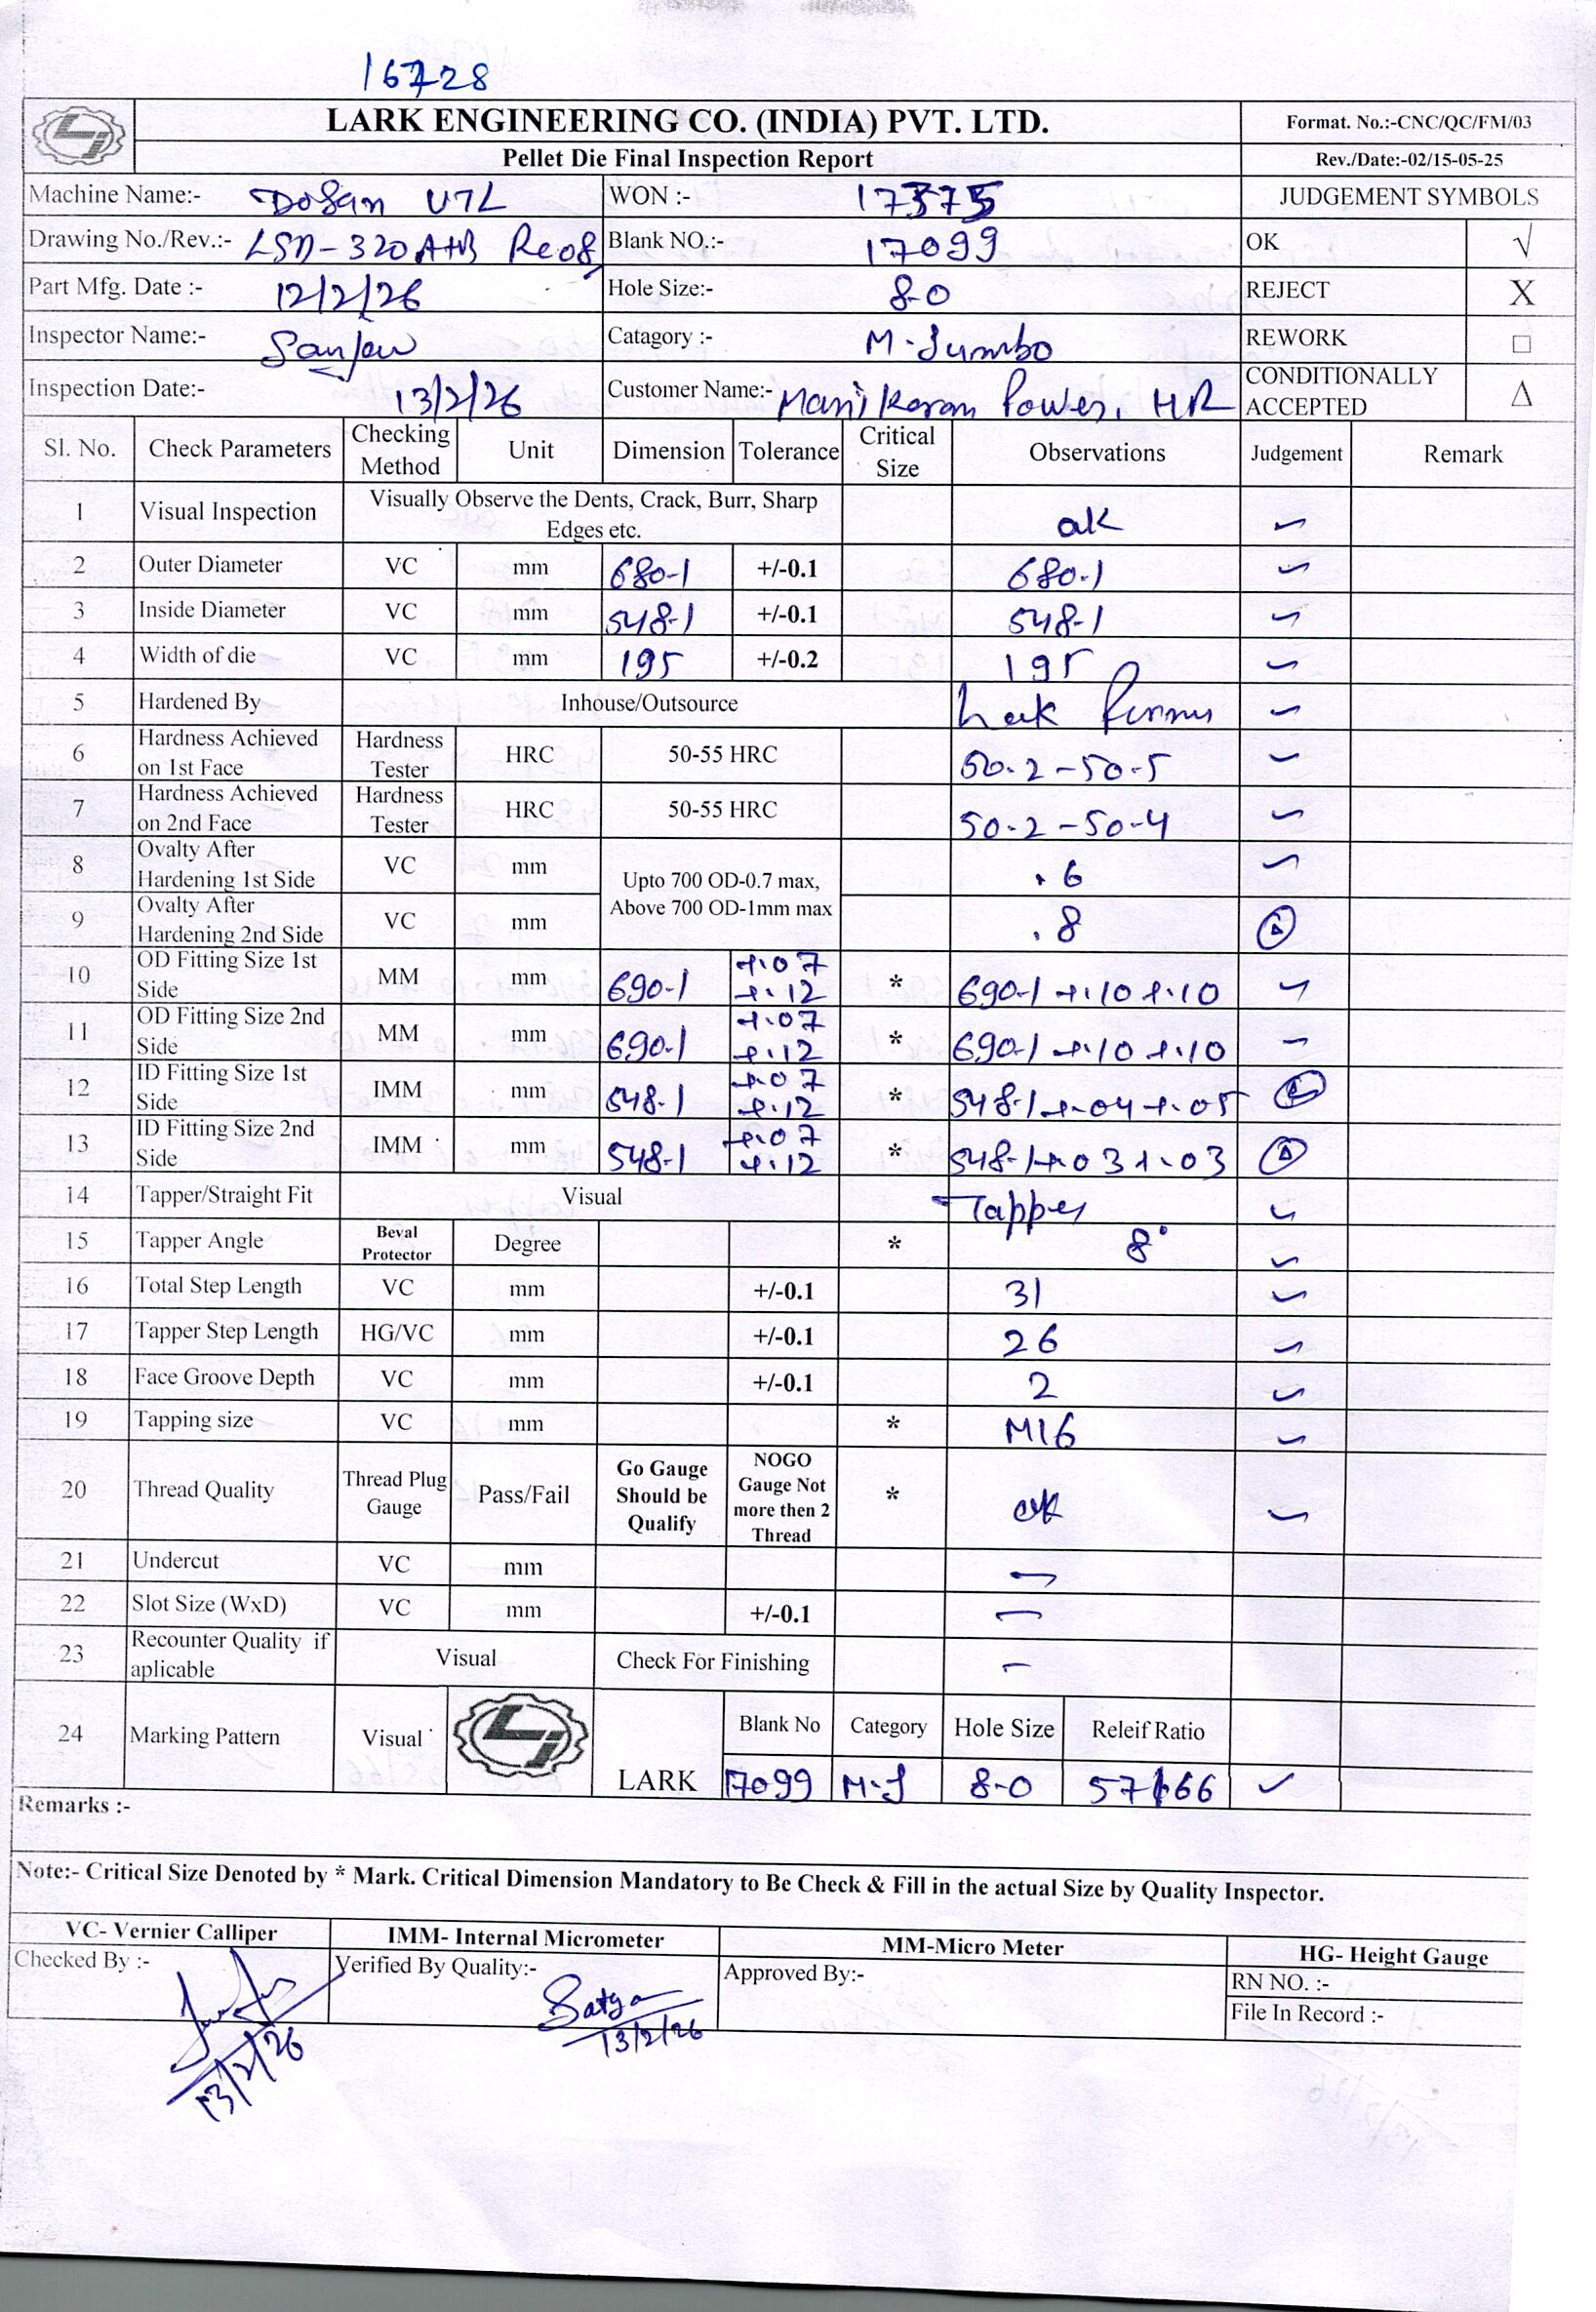 16728
LARK ENGINEERING CO. (INDIA) PVT. LTD.
Format. No.:-CNC/QC/FM/03
Pellet Die Final Inspection Report
Rev./Date:-02/15-05-25
Machine Name:- Dosan VTL WON :- 17375 JUDGEMENT SYMBOLS
Drawing No./Rev.:- LSD-320 A+B Re08 Blank NO.:- 17099 OK √
Part Mfg. Date :- 12/2/26 Hole Size:- 8-0 REJECT X
Inspector Name:- Sanjew Catagory :- M-Jumbo REWORK □
Inspection Date:- 13/2/26 Customer Name:- Manikaran Power, HR CONDITIONALLY ACCEPTED Δ
Sl. No. Check Parameters Checking Method Unit Dimension Tolerance Critical Size Observations Judgement Remark
1 Visual Inspection Visually Observe the Dents, Crack, Burr, Sharp Edges etc. ok √
2 Outer Diameter VC mm 680-1 +/-0.1 680.1 √
3 Inside Diameter VC mm 548-1 +/-0.1 548-1 √
4 Width of die VC mm 195 +/-0.2 195 √
5 Hardened By Inhouse/Outsource √
6 Hardness Achieved on 1st Face Hardness Tester HRC 50-55 HRC 50.2-50.5 √
7 Hardness Achieved on 2nd Face Hardness Tester HRC 50-55 HRC 50-2-50-4 √
8 Ovalty After Hardening 1st Side VC mm Upto 700 OD-0.7 max, Above 700 OD-1mm max .6 √
9 Ovalty After Hardening 2nd Side VC mm .8 Δ
10 OD Fitting Size 1st Side MM mm 690-1 +.07 +.12 * 690-1 +.10 +.10 √
11 OD Fitting Size 2nd Side MM mm 690-1 +.07 +.12 * 690-1 +.10 +.10 √
12 ID Fitting Size 1st Side IMM mm 548-1 +.07 +.12 * 548-1 +.04 +.05 Δ
13 ID Fitting Size 2nd Side IMM mm 548-1 +.07 +.12 * 548-1 +.03 +.03 Δ
14 Tapper/Straight Fit Visual Tapper √
15 Tapper Angle Beval Protector Degree * 8° √
16 Total Step Length VC mm +/-0.1 31 √
17 Tapper Step Length HG/VC mm +/-0.1 26 √
18 Face Groove Depth VC mm +/-0.1 2 √
19 Tapping size VC mm * M16 √
20 Thread Quality Thread Plug Gauge Pass/Fail Go Gauge Should be Qualify NOGO Gauge Not more then 2 Thread * ok √
21 Undercut VC mm -
22 Slot Size (WxD) VC mm +/-0.1 -
23 Recounter Quality if aplicable Visual Check For Finishing -
24 Marking Pattern Visual LARK Blank No Category Hole Size Releif Ratio
17099 M-J 8-0 57/66 √
Remarks :-
Note:- Critical Size Denoted by * Mark. Critical Dimension Mandatory to Be Check & Fill in the actual Size by Quality Inspector.
VC- Vernier Calliper IMM- Internal Micrometer MM-Micro Meter HG- Height Gauge
Checked By :- Verified By Quality:- Approved By:- RN NO. :-
File In Record :-
Satya
13/2/26 13/2/26